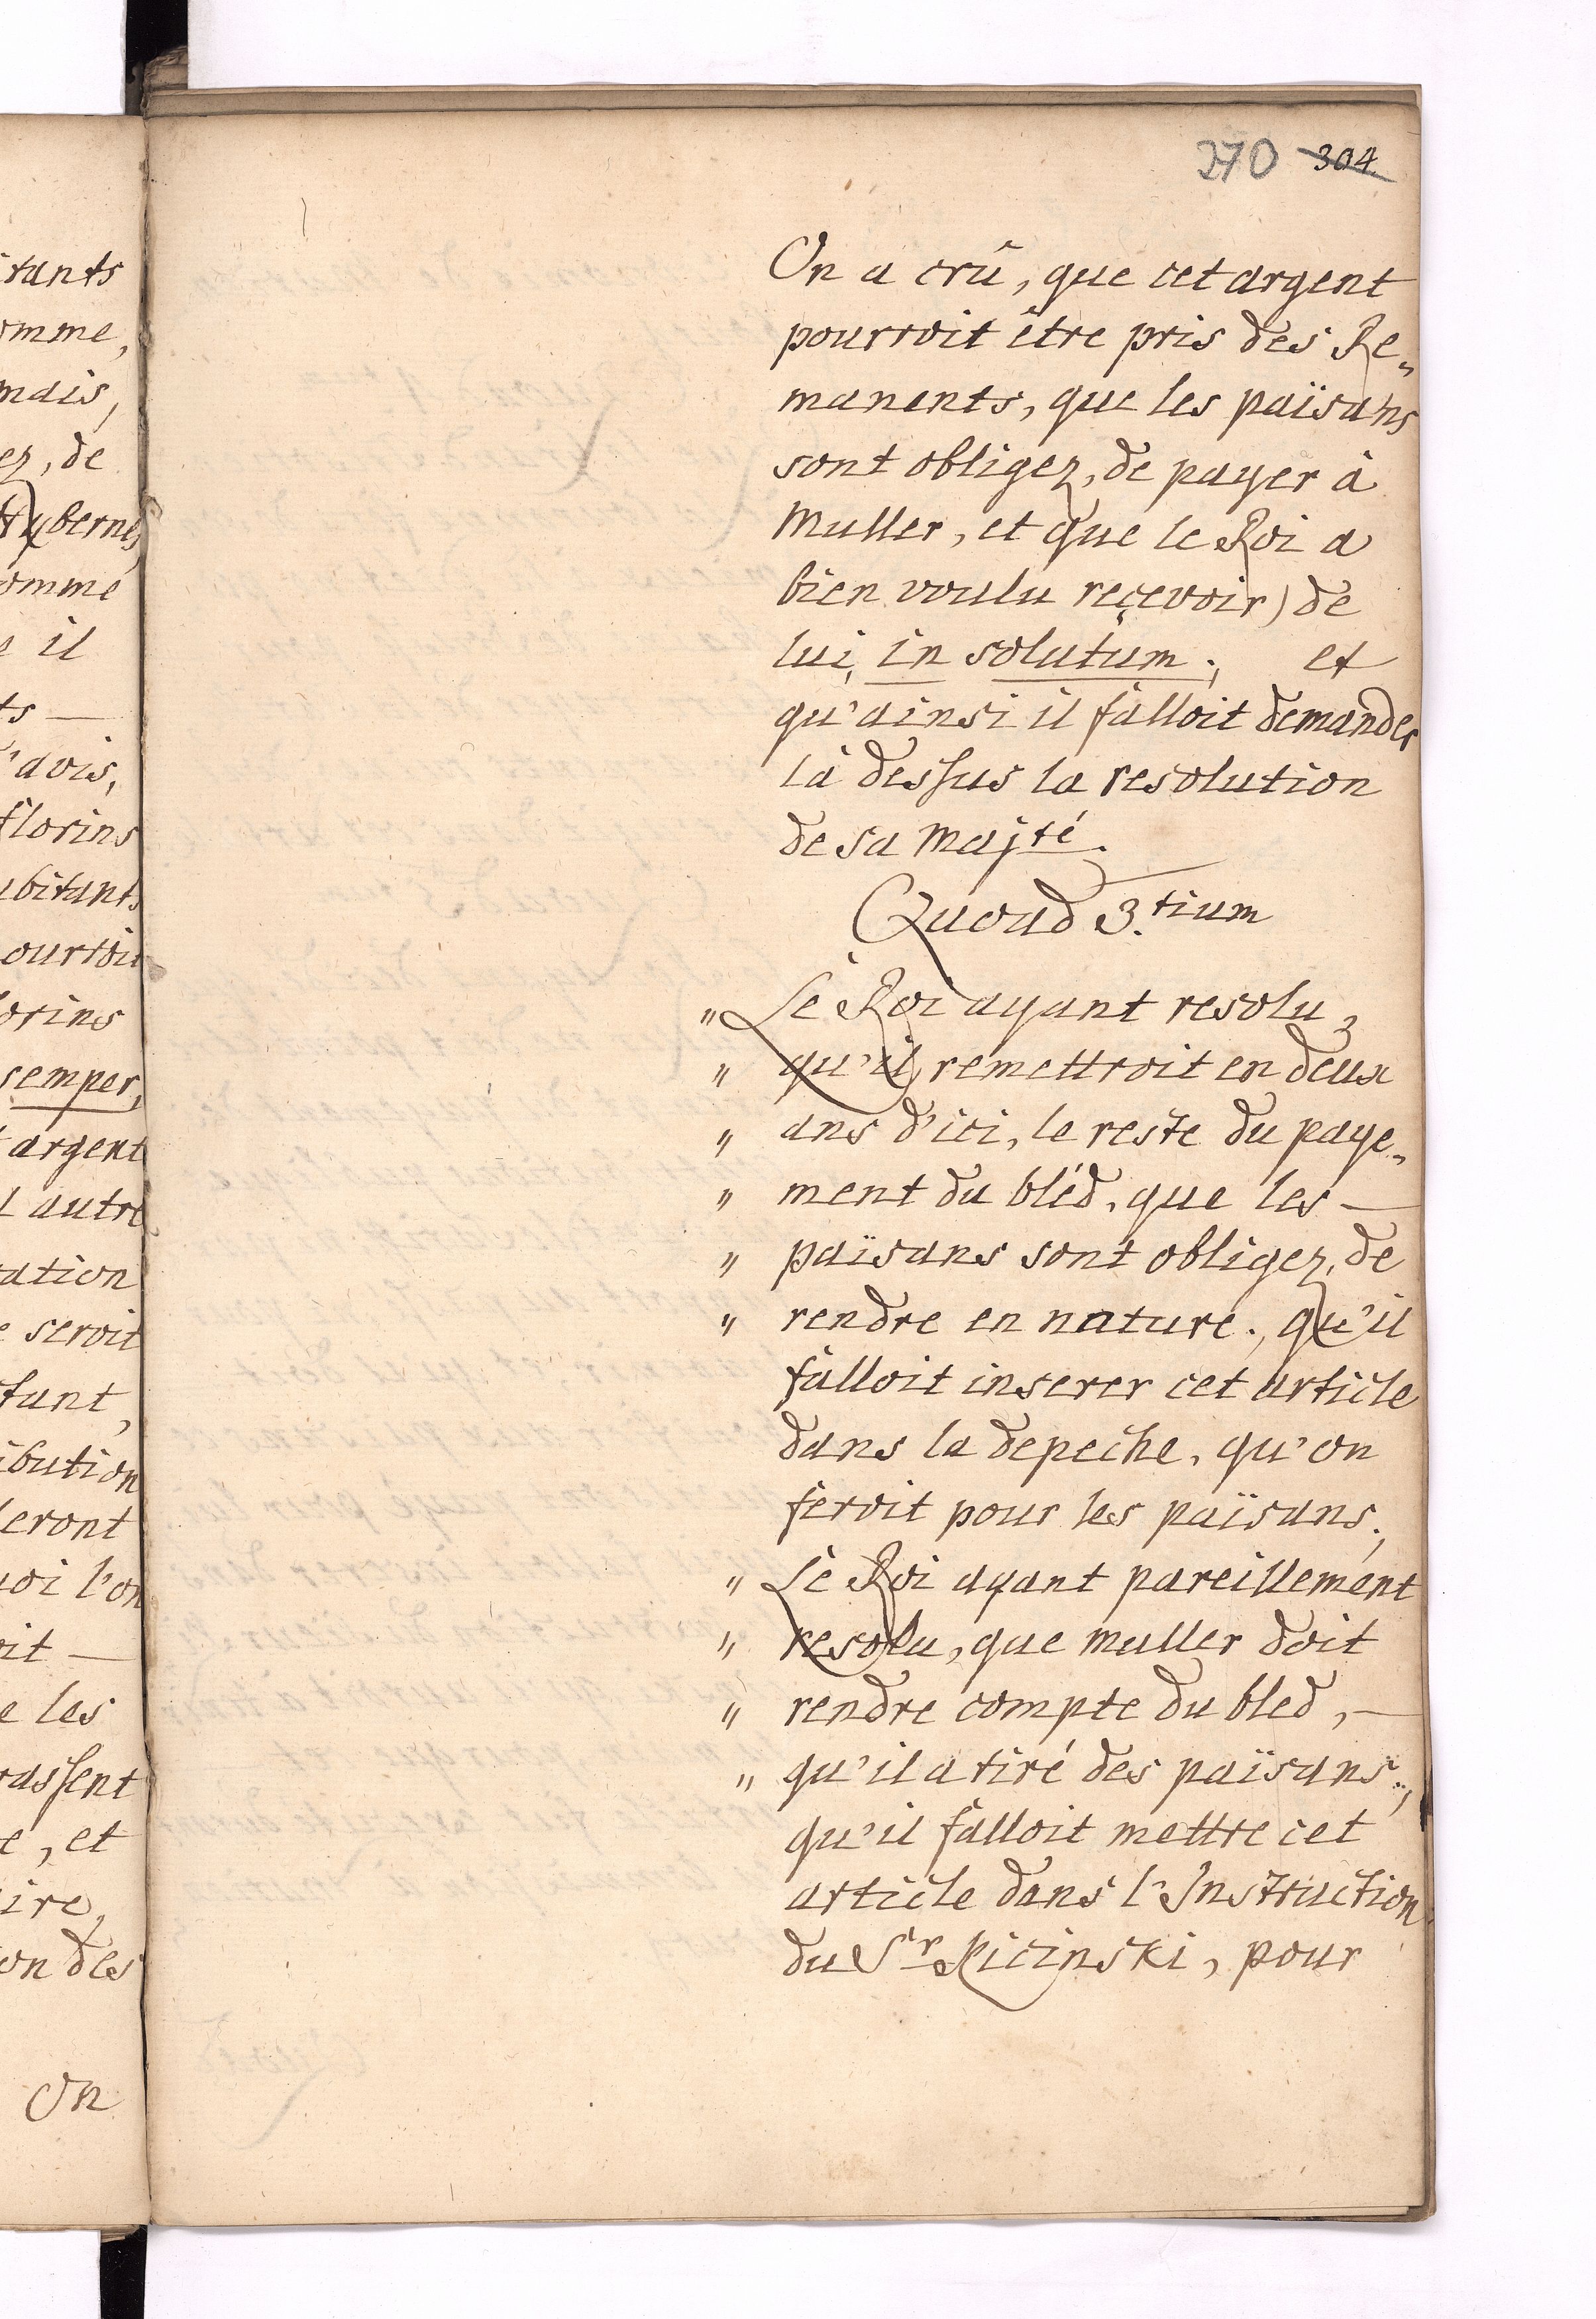 tants
omme,
mais,
ez, de
Hybernes,
omme
e il
ts —
d'avis,
florins
abitants
ourroit
lorins
semper,
argent
l autre
tation
e seroit
tant,
ibution
leront
uoi l'on
oit —
e les
rassent
e, et
ire,
on des
On
270 304
On a crû, que cet argent
pourroit être pris des Re„
manents, que les païsans
sont obligez, de payer à
Muller, et que le Roi a
bien voulu reçevoir) de
lui, in solutum; et
qu'ainsi il falloit demander
là dessus la resolution
de sa Majté.
Quoad 3.tium
„ Le Roi ayant resolu,
„ qu'il remettroit en deux
„ ans d'ici, le reste du paye„
„ ment du bléd, que les —
„ païsans sont obligez, de
„ rendre en nature; qu'il
falloit inserer cet article
dans la depeche, qu'on
feroit pour les païsans;
„ Le Roi ayant pareillement
„ resolu, que Muller doit
„ rendre compte du bled, —
„ qu'il a tiré des païsans;
qu'il falloit mettre cet
article dans l'Instruction
du Sr Kicinski, pour